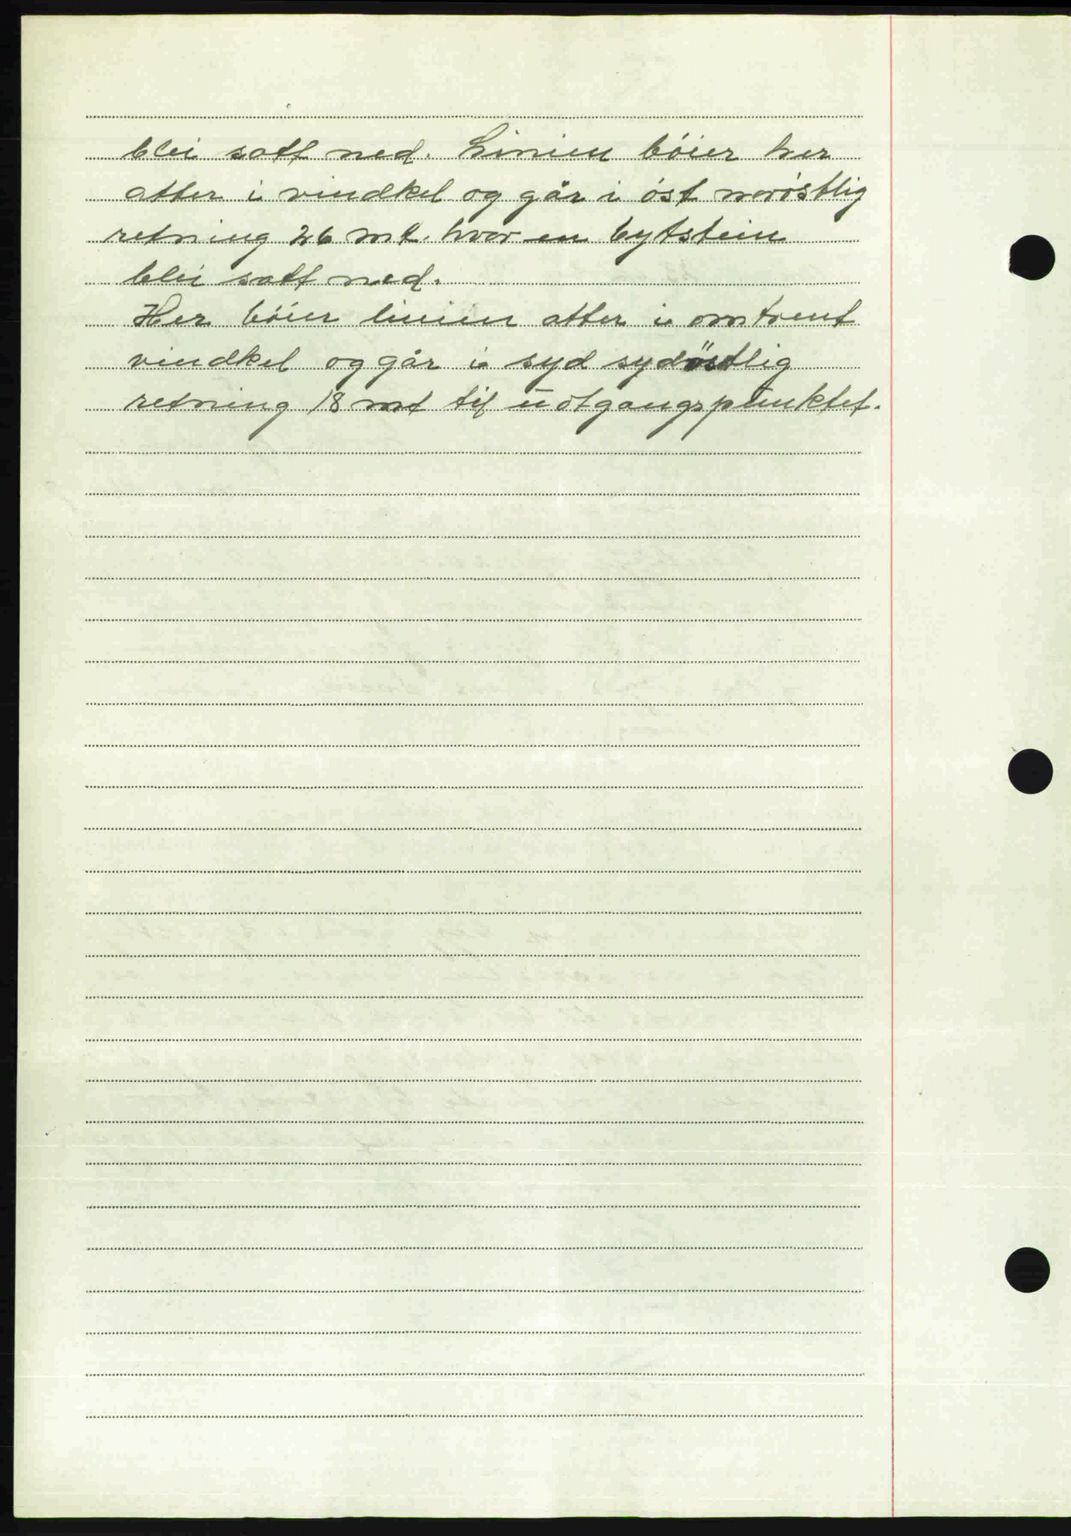 blei satt ned. Linien böier her
atter i vindkel og går i öst noröstlig
retning 26 mt. hvor en bytstein
blei satt ned.
Her böier linien atter i omtrent
vindkel og går i syd sydöstlig
retning 18 mt til utgangspunktet.